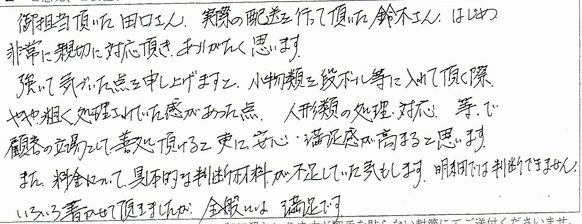 御担当頂いた田口さん、実際の配送を行って頂いた鈴木さん、はじめ
非常に親切に対応頂き、ありがたく思います。
強いて気づいた点を申し上げますと、小物類を段ボール等に入れて頂く際
やや粗く処理されていた感があった点、人形類の処理・対応、等で
顧客の立場として善処頂けると更に安心・満足感が高まると思います。
また、料金について、具体的な判断材料が不足していた気もします。明細では判断できません。
いろいろ書かせて頂きましたが、全般といは満足です